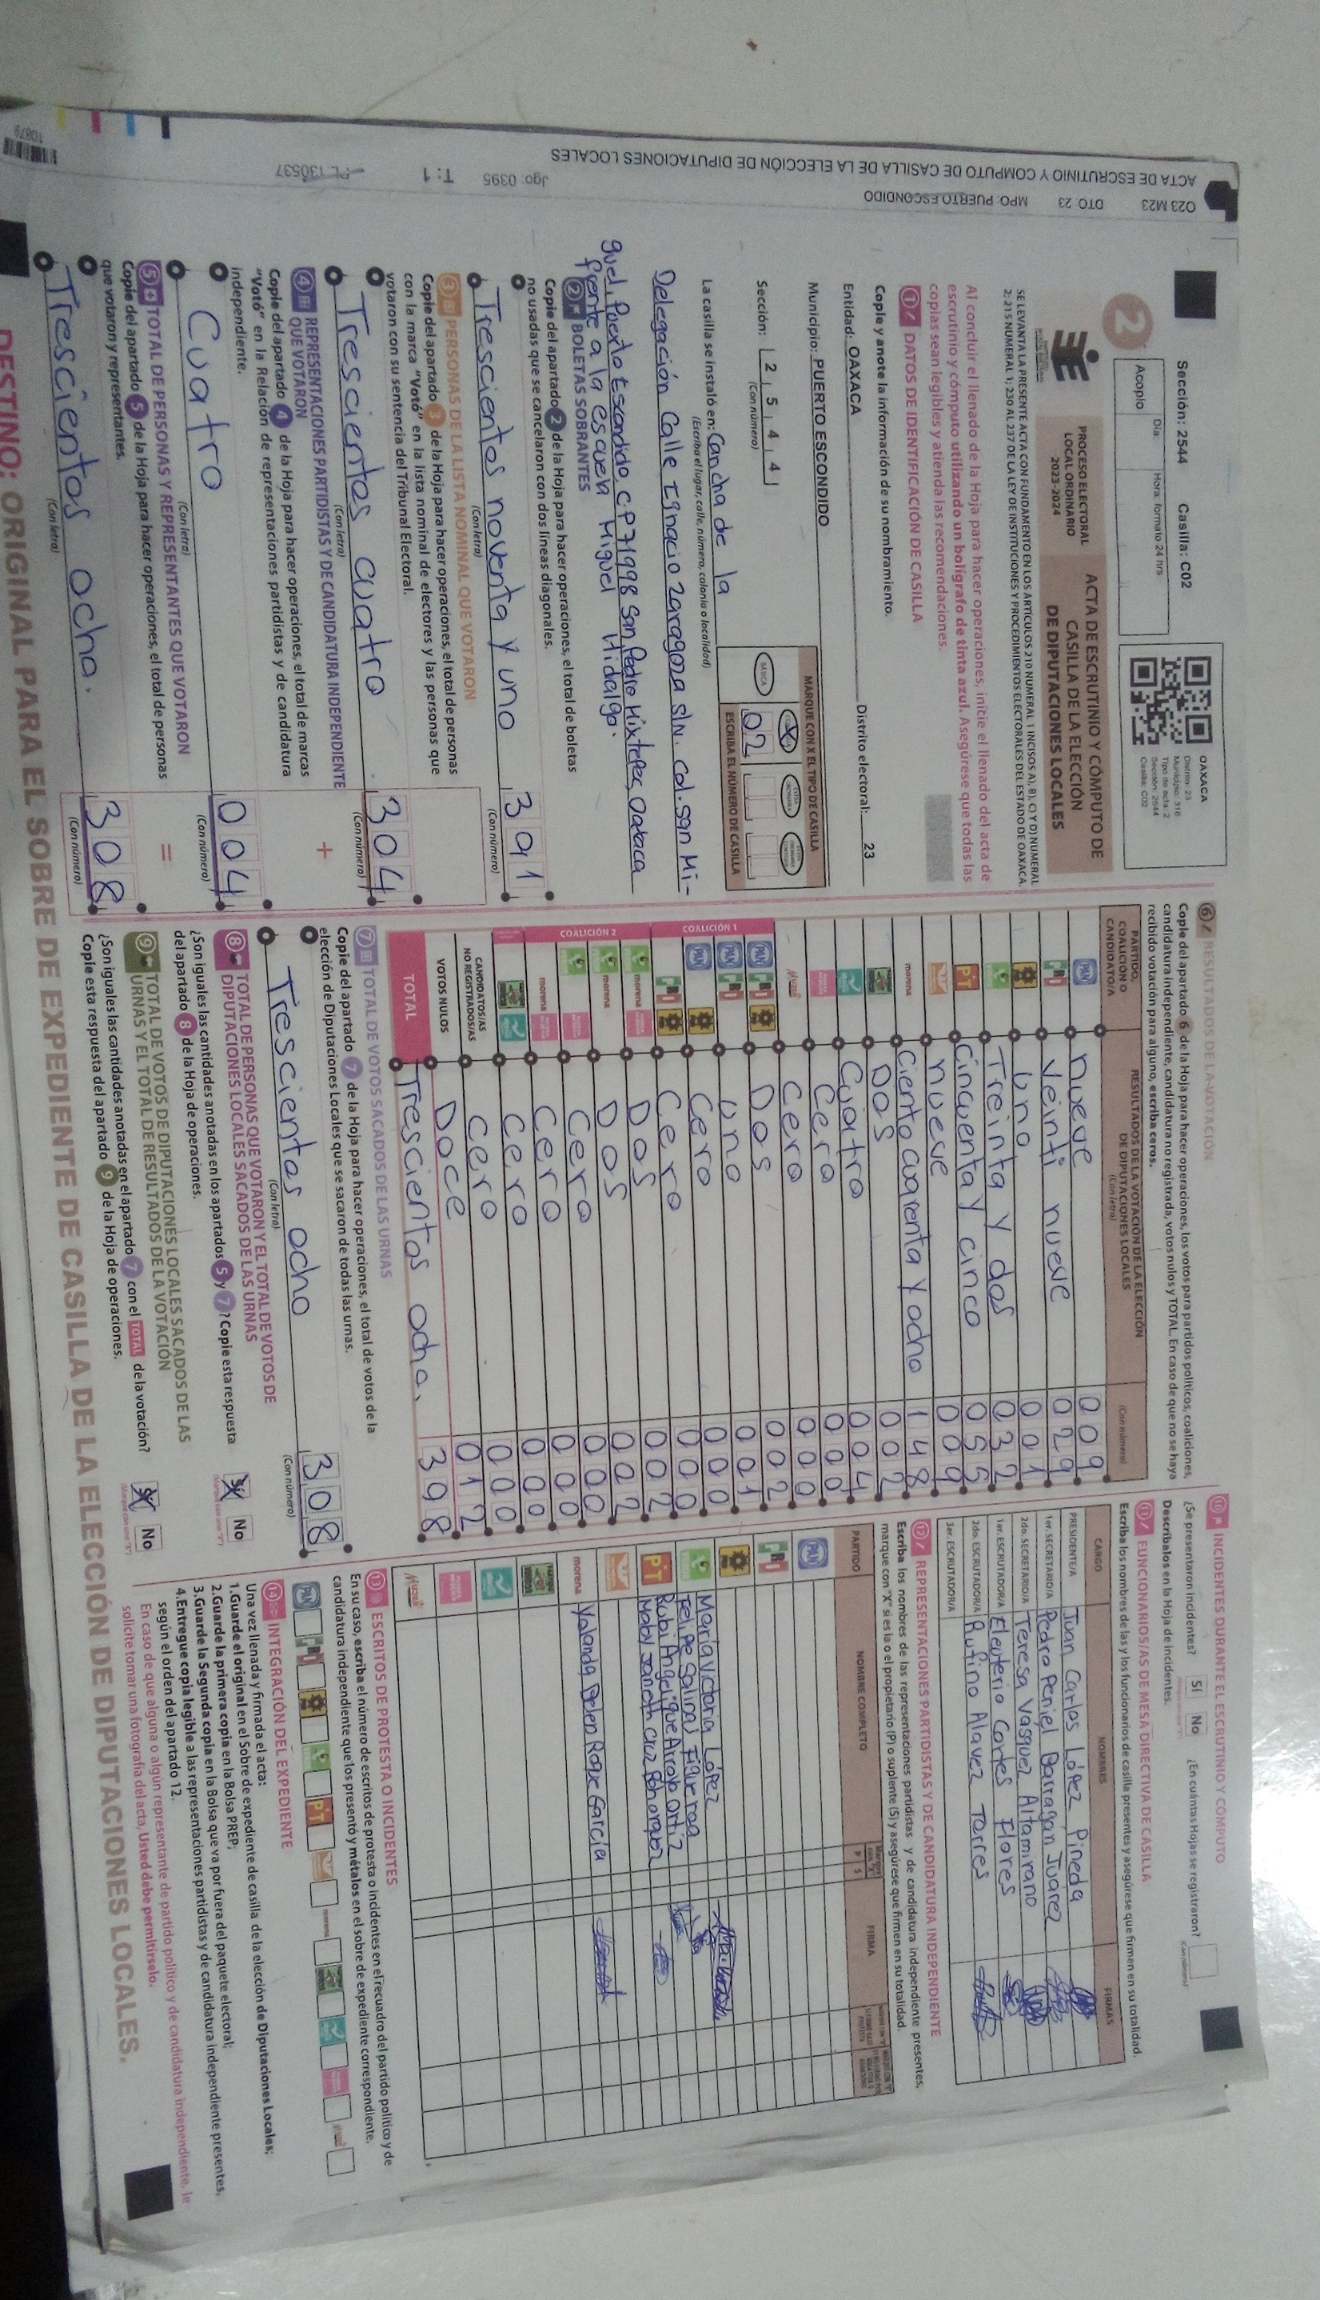 O23 M23 DTO: 23 MPO: PUERTO ESCONDIDO
ACTA DE ESCRUTINIO Y CÓMPUTO DE CASILLA DE LA ELECCIÓN DE DIPUTACIONES LOCALES
Jgo: 0395 T: 1 PL 130537
10879
Sección: 2544 Casilla: C02
2
Acopio
Día:
Hora: formato 24 hrs
OAXACA
Distrito: 23
Municipio: 318
Tipo de acta: 2
Sección: 2544
Casilla: C02
PROCESO ELECTORAL
LOCAL ORDINARIO
2023-2024
ACTA DE ESCRUTINIO Y CÓMPUTO DE
CASILLA DE LA ELECCIÓN
DE DIPUTACIONES LOCALES
SE LEVANTA LA PRESENTE ACTA CON FUNDAMENTO EN LOS ARTÍCULOS 210 NUMERAL 1 INCISOS A), B), C) Y D) NUMERAL
2; 215 NUMERAL 1; 230 AL 237 DE LA LEY DE INSTITUCIONES Y PROCEDIMIENTOS ELECTORALES DEL ESTADO DE OAXACA.
Al concluir el llenado de la Hoja para hacer operaciones, inicie el llenado del acta de
escrutinio y cómputo utilizando un bolígrafo de tinta azul. Asegúrese que todas las
copias sean legibles y atienda las recomendaciones.
1 DATOS DE IDENTIFICACIÓN DE CASILLA
Copie y anote la información de su nombramiento.
Entidad: OAXACA Distrito electoral: 23
Municipio: PUERTO ESCONDIDO
Sección: 2 5 4 4
(Con número)
MARQUE CON X EL TIPO DE CASILLA
BÁSICA
X
02
ESCRIBA EL NÚMERO DE CASILLA
La casilla se instaló en: Cancha de la
(Escriba el lugar, calle, número, colonia o localidad)
Delegación Calle Ignacio Zaragoza s/n. Col. San Mi-
guel, Puerto Escondido C.P 71998 San Pedro Mixtepec, Oaxaca
frente a la escuela Miguel Hidalgo.
2 BOLETAS SOBRANTES
Copie del apartado 2 de la Hoja para hacer operaciones, el total de boletas
no usadas que se cancelaron con dos líneas diagonales.
Trescientos noventa y uno 391
(Con letra) (Con número)
3 PERSONAS DE LA LISTA NOMINAL QUE VOTARON
Copie del apartado 3 de la Hoja para hacer operaciones, el total de personas
con la marca "Votó" en la lista nominal de electores y las personas que
votaron con su sentencia del Tribunal Electoral.
Trescientos cuatro 304
(Con letra) (Con número)
4 REPRESENTACIONES PARTIDISTAS Y DE CANDIDATURA INDEPENDIENTE
QUE VOTARON
+
Copie del apartado 4 de la Hoja para hacer operaciones, el total de marcas
"Votó" en la Relación de representaciones partidistas y de candidatura
independiente.
Cuatro 004
(Con letra) (Con número)
5 TOTAL DE PERSONAS Y REPRESENTANTES QUE VOTARON
=
Copie del apartado 5 de la Hoja para hacer operaciones, el total de personas
que votaron y representantes.
Trescientos ocho. 308
(Con letra) (Con número)
6 RESULTADOS DE LA VOTACIÓN
Copie del apartado 6 de la Hoja para hacer operaciones, los votos para partidos políticos, coaliciones,
candidatura independiente, candidatura no registrada, votos nulos y TOTAL. En caso de que no se haya
recibido votación para alguno, escriba ceros.
PARTIDO,
COALICIÓN O
CANDIDATO/A
RESULTADOS DE LA VOTACIÓN DE LA ELECCIÓN
DE DIPUTACIONES LOCALES
(Con letra)
(Con número)
PAN nueve 009
PRI Veinti nueve 029
uno 001
Treinta y dos 032
PT Cincuenta y cinco 055
nueve 009
morena Ciento cuarenta y ocho 148
Dos 002
Cuatro 004
Cero 000
Cero 000
COALICIÓN 1
PAN PRI Dos 002
PAN PRI uno 001
PAN Cero 000
PRI Cero 000
COALICIÓN 2
morena Dos 002
morena Dos 002
Cero 000
morena Cero 000
Cero 000
CANDIDATOS/AS
NO REGISTRADOS/AS Cero 000
VOTOS NULOS Doce 012
TOTAL Trescientos ocho. 398
7 TOTAL DE VOTOS SACADOS DE LAS URNAS
Copie del apartado 7 de la Hoja para hacer operaciones, el total de votos de la
elección de Diputaciones Locales que se sacaron de todas las urnas.
Trescientos ocho 308
(Con letra) (Con número)
8 TOTAL DE PERSONAS QUE VOTARON Y EL TOTAL DE VOTOS DE
DIPUTACIONES LOCALES SACADOS DE LAS URNAS
¿Son iguales las cantidades anotadas en los apartados 5 y 7? Copie esta respuesta
del apartado 8 de la Hoja de operaciones.
No
9 TOTAL DE VOTOS DE DIPUTACIONES LOCALES SACADOS DE LAS
URNAS Y EL TOTAL DE RESULTADOS DE LA VOTACIÓN
¿Son iguales las cantidades anotadas en el apartado 7 con el TOTAL de la votación?
Copie esta respuesta del apartado 9 de la Hoja de operaciones.
No
10 INCIDENTES DURANTE EL ESCRUTINIO Y CÓMPUTO
¿Se presentaron incidentes? Sí No ¿En cuántas Hojas se registraron?
Descríbalos en la Hoja de incidentes.
11 FUNCIONARIOS/AS DE MESA DIRECTIVA DE CASILLA
Escriba los nombres de las y los funcionarios de casilla presentes y asegúrese que firmen en su totalidad.
CARGO NOMBRES FIRMAS
PRESIDENTE/A Juan Carlos López Pineda
1er. SECRETARIO/A Pedro Peniel Barragán Juarez
2do. SECRETARIO/A Teresa Vasquez Altamirano
1er. ESCRUTADOR/A Eleuterio Cortes Flores
2do. ESCRUTADOR/A Rufino Alavez Torres
3er. ESCRUTADOR/A
12 REPRESENTACIONES PARTIDISTAS Y DE CANDIDATURA INDEPENDIENTE
Escriba los nombres de las representaciones partidistas y de candidatura independiente presentes,
marque con "X" si es la o el propietario (P) o suplente (S) y asegúrese que firmen en su totalidad.
PARTIDO NOMBRE COMPLETO P S FIRMA
PAN
PRI
María Victoria López
Felipe Salinas Figueroa
PT Rubi Angelique Arroyo Ortiz
morena Yolanda Belen Roque García
13 ESCRITOS DE PROTESTA O INCIDENTES
En su caso, escriba el número de escritos de protesta o incidentes en el recuadro del partido político y de
candidatura independiente que los presentó y métalos en el sobre de expediente correspondiente.
PAN PRI PT morena
14 INTEGRACIÓN DEL EXPEDIENTE
Una vez llenada y firmada el acta:
1.Guarde el original en el Sobre de expediente de casilla de la elección de Diputaciones Locales;
2.Guarde la primera copia en la Bolsa PREP;
3.Guarde la Segunda copia en la Bolsa que va por fuera del paquete electoral;
4.Entregue copia legible a las representaciones partidistas y de candidatura independiente presentes,
según el orden del apartado 12.
En caso de que alguna o algún representante de partido político y de candidatura independiente, le
solicite tomar una fotografía del acta, Usted debe permitírselo.
DESTINO: ORIGINAL PARA EL SOBRE DE EXPEDIENTE DE CASILLA DE LA ELECCIÓN DE DIPUTACIONES LOCALES.